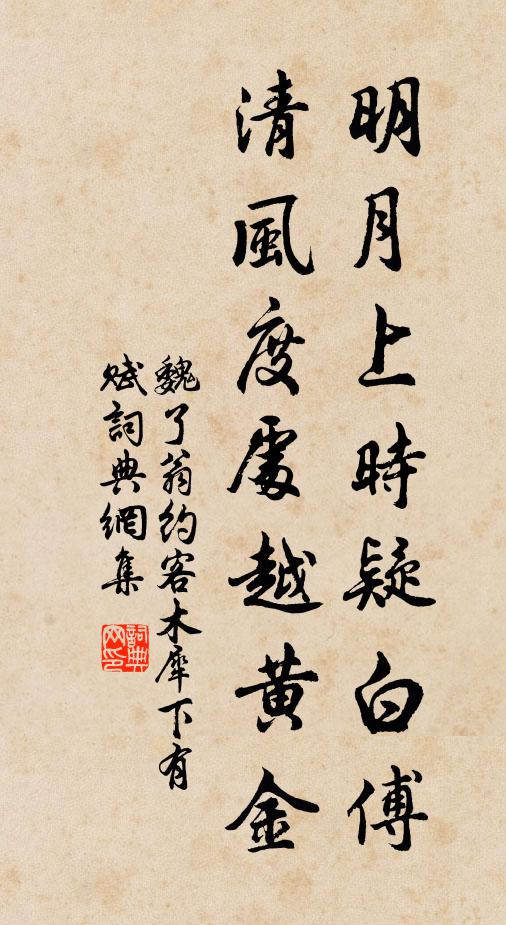 明月上時疑白傅
清風度處越黃金
魏了翁約客木犀下有
賦詞典網集
詞典網印